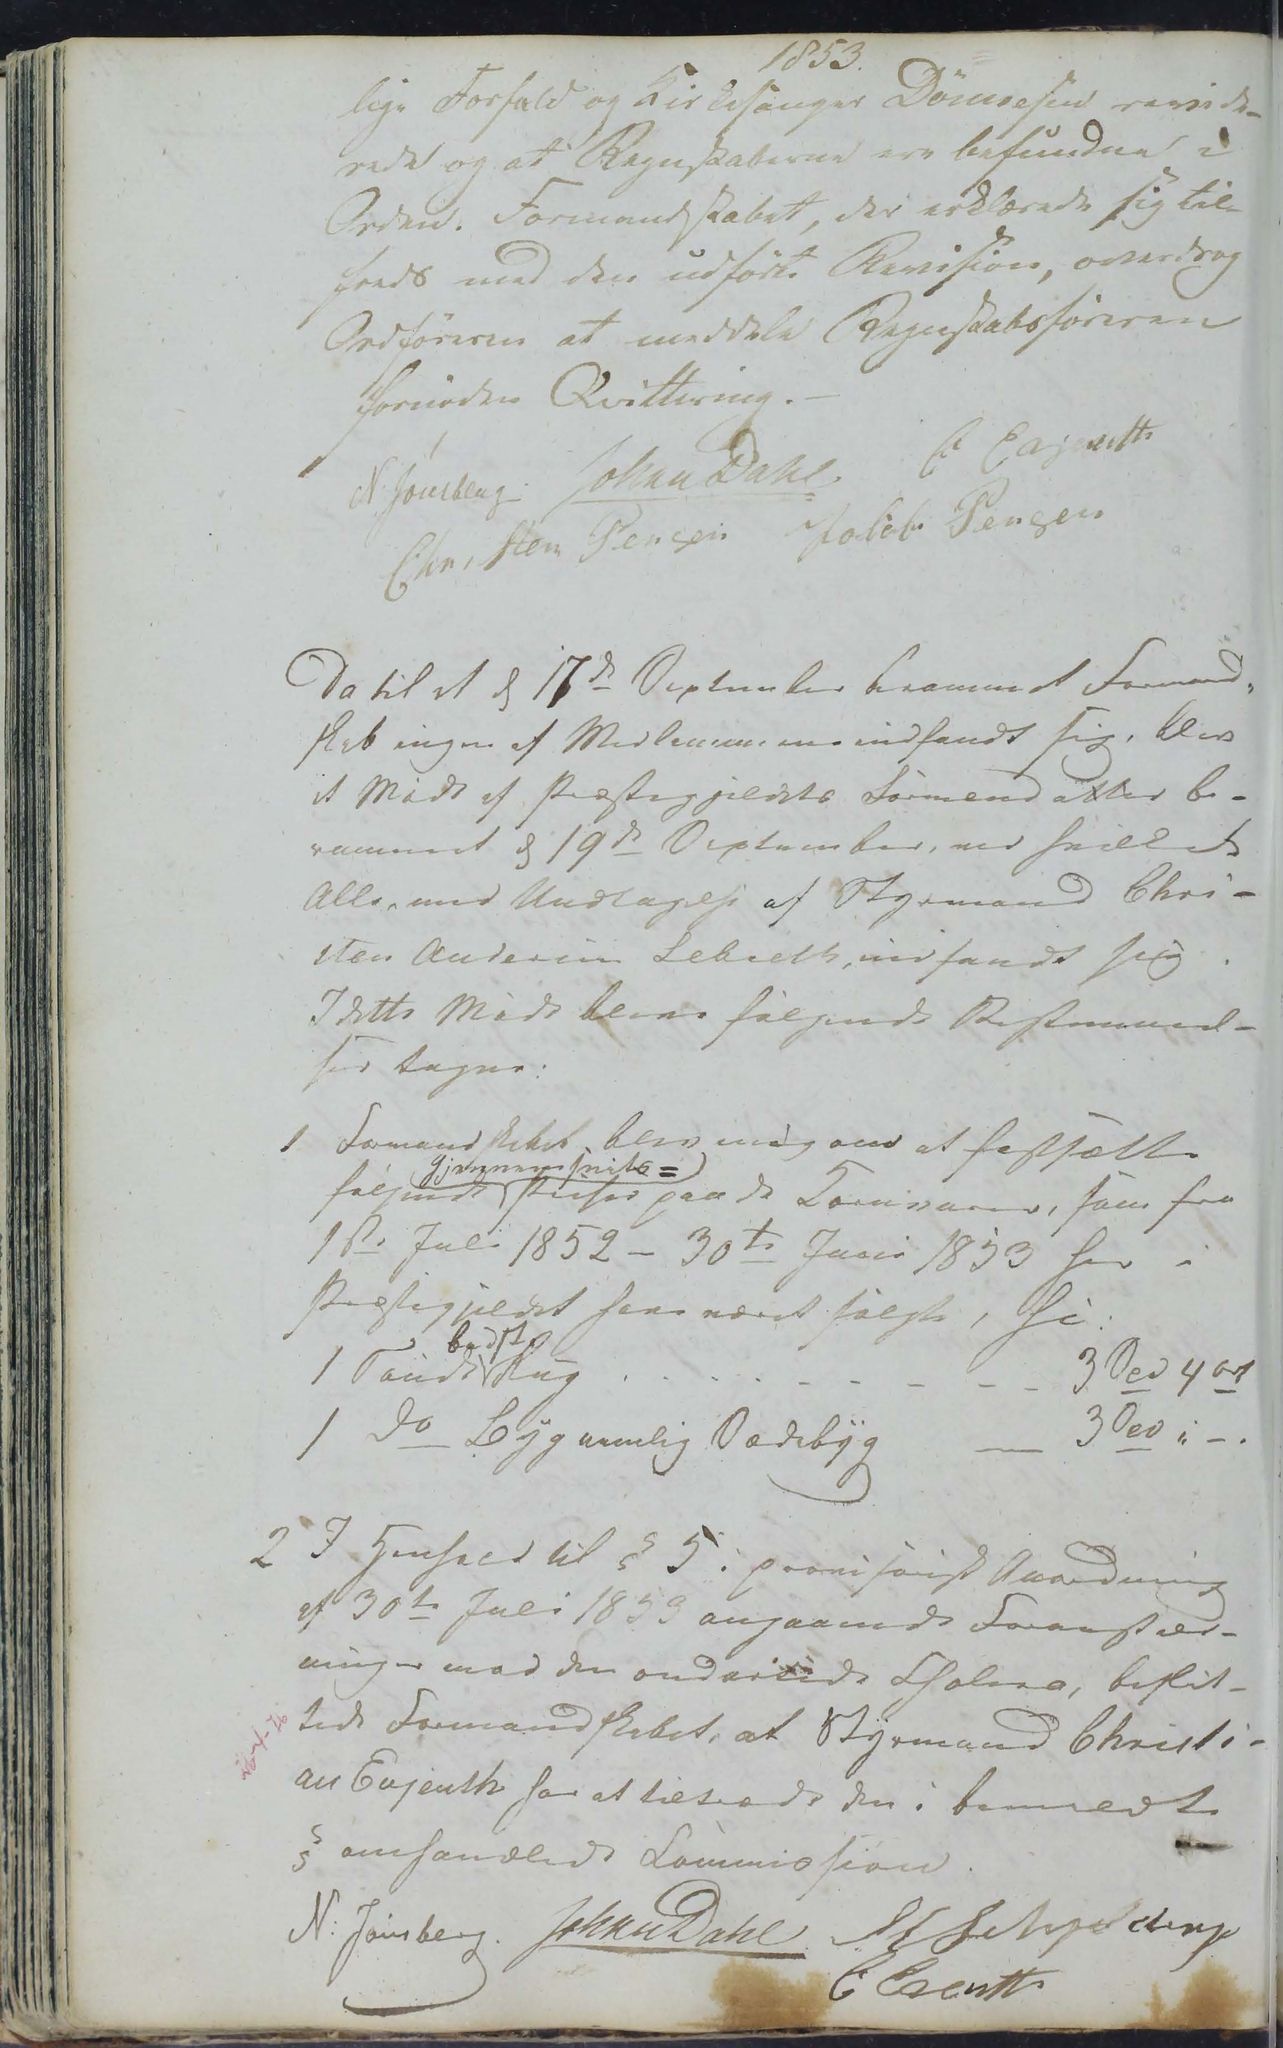 1853.
lige Forfald og Kirkesanger Dönnesen revide-
rede og at Regnskaberne ere befundne i
Orden. Formandskabet, der erklærede sig til-
freds med den udförte Revision, overdrog
Ordföreren at meddele Regnskabsföreren
fornöden Qvittering. -
N. Jönsberg. Johan Dahl. C Evjenth
Christen Pensen Jakob Pensen
Da til et d 17de September berammet Formand-
skab ingen af Medlemmerne indfandt sig, blev
et Möde af Præstegjeldets Formænd atter be-
rammet d 19de September, ved hvilket
Alle, med Undtagelse af Styrmand Chri-
sten indfandt sig.
I dette Möde bleve fölgende Bestemmel-
ser tagne:
1 Formandskabet blev enig om at fastsætte
gjennemsnits=
fölgende Priser paa de Kornvarer, som fra
1ste Juli 1852 - 30te Juni 1853 her i
Præstegjeldet have været solgte, se:
bedste
1 Tönde Rug . . . . . - - - - - 3 Spd 4 ort
1 do Byg nemlig Sædebyg — 3 Spd " -.
2 I Henhold til § 5 i provisorisk Anordning
af 30te Juli 1853 angaaende Foranstalt-
ninger mod den ondartede Cholera, beslut-
tede Formandskabet, at Styrmand Christi-
an Evjenth har at tiltræde den i bemeldte
§ omhandlede Commission.
N. Jönsberg. Johan Dahl
C Eventh